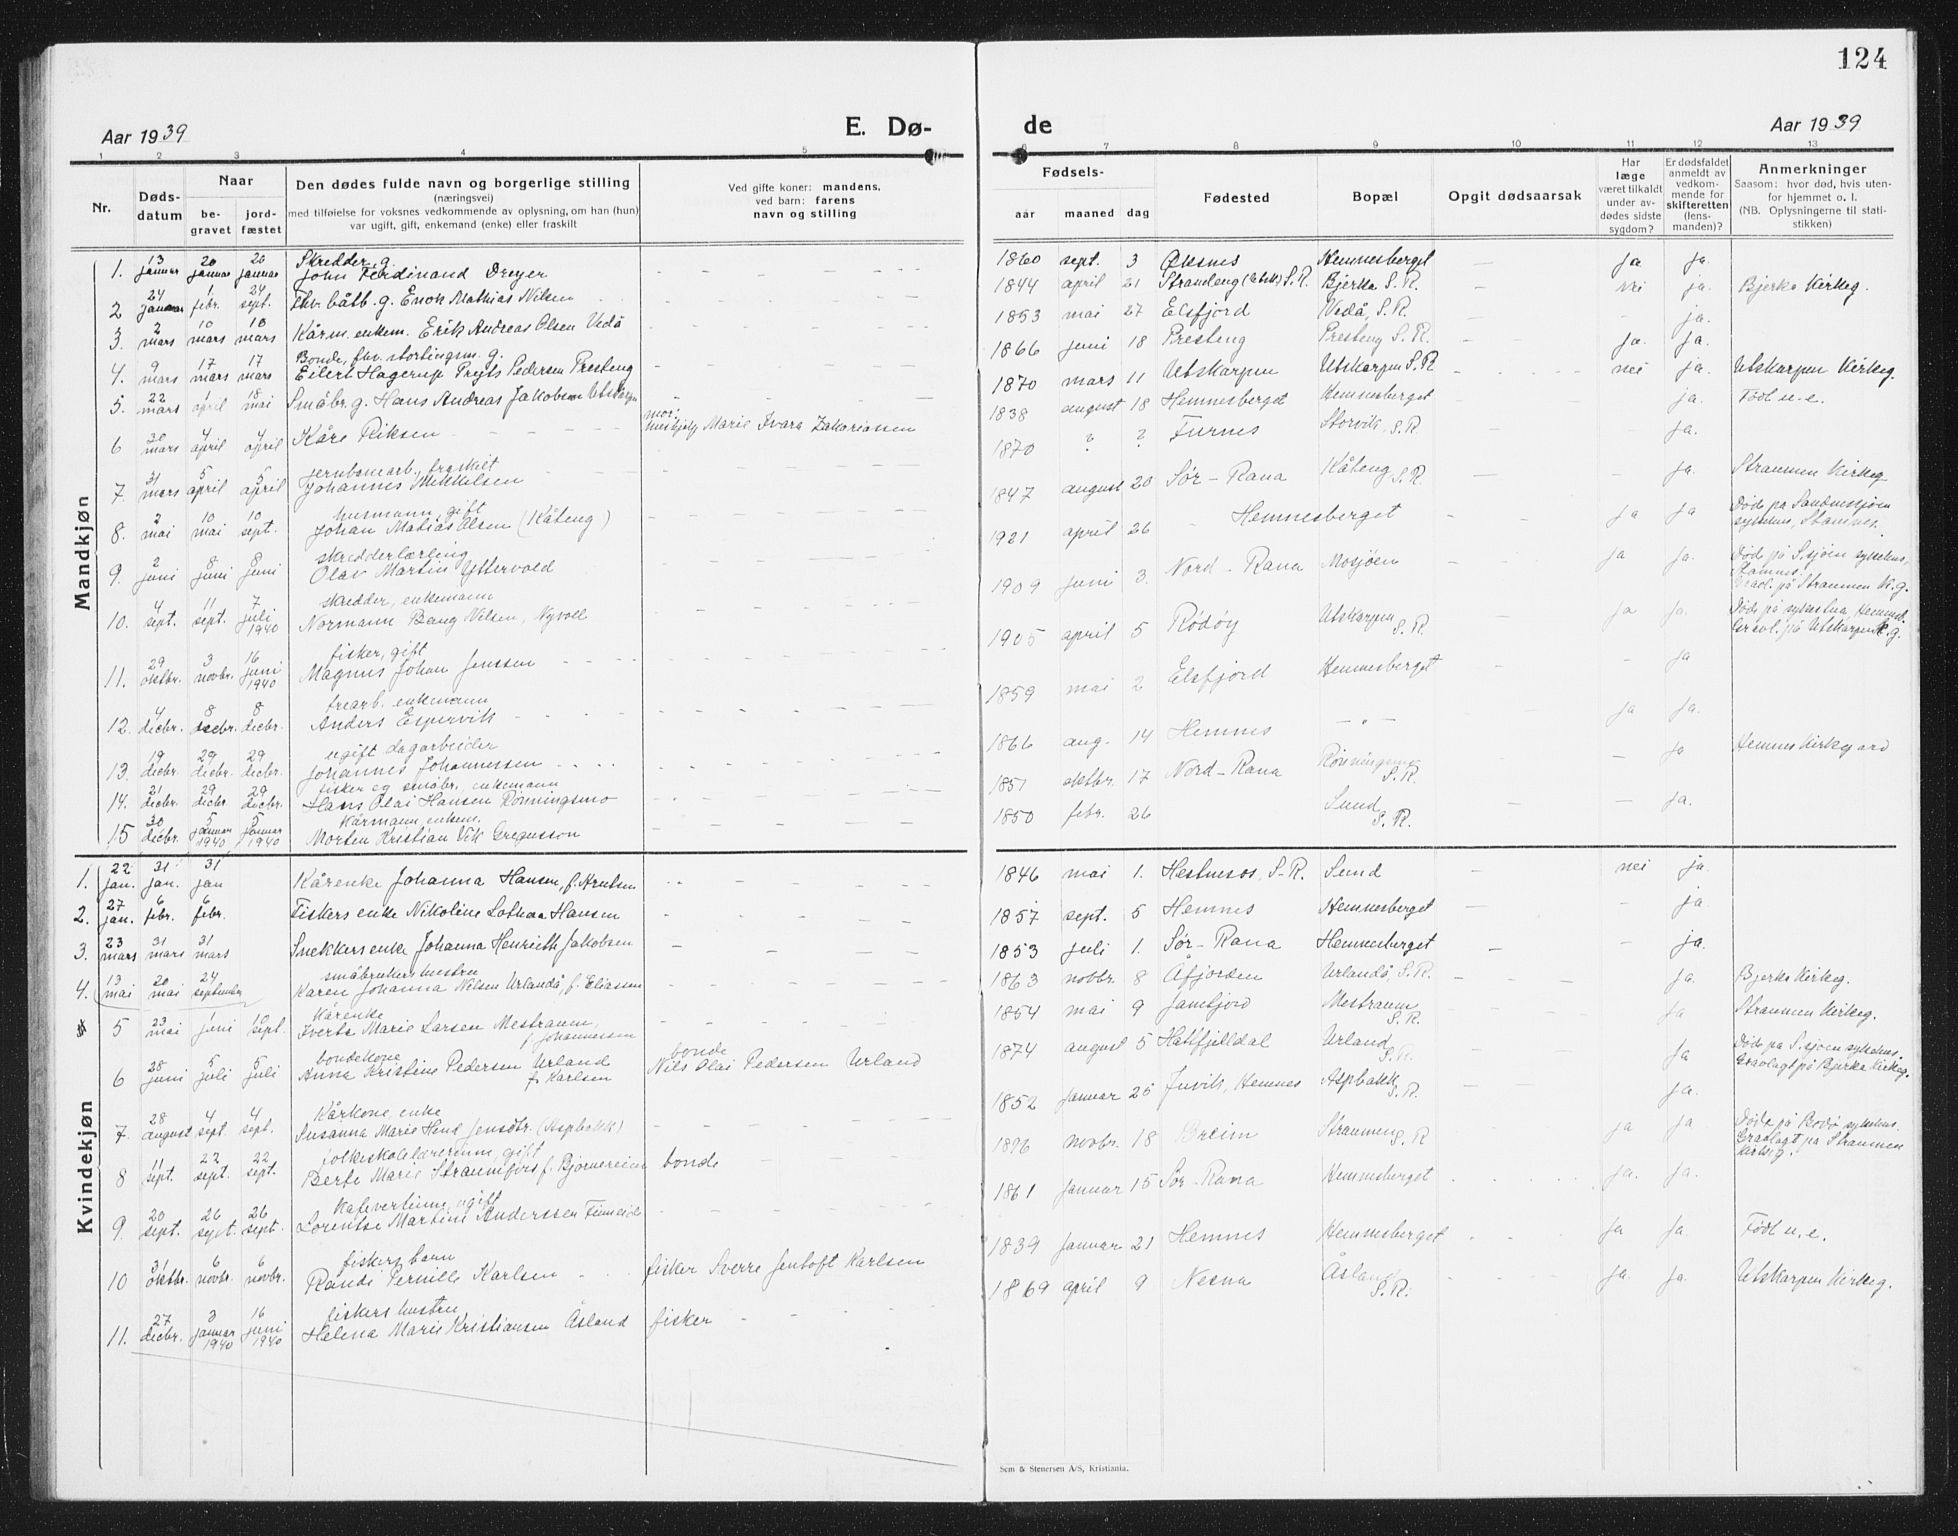 124
Aar 1939
E. Dø-
de
Aar 1939
1 2 3 4 5
6 7 8 9 10 11 12 13
Nr.
Døds-
datum
Naar
be-
gravet
jord-
fæstet
Den dødes fulde navn og borgerlige stilling
(næringsvei)
med tilføielse for voksnes vedkommende av oplysning, om han (hun)
var ugift, gift, enkemand (enke) eller fraskilt
Ved gifte koner: mandens,
ved barn: farens
navn og stilling
Fødsels-
aar maaned dag
Fødested
Bopæl
Opgit dødsaarsak
Har
læge
været tilkaldt
under av-
dødes sidste
sygdom?
Er dødsfaldet
anmeldt av
vedkom-
mende for
skifteretten
(lens-
manden)?
Anmerkninger
Saasom: hvor død, hvis uten-
for hjemmet o. l.
(NB. Oplysningerne til stati-
stikken)
Mandkjøn
1. 13 januar 20 januar 20 januar Skredder, g.
John Ferdinand Dreyer
2 24 januar 1 febr. 24 sept. Fhv. båtb. g. Enok Mathias Nilsen
3. 2 mars 10 mars 10 mars Kårm. enkem. Erik Andreas Olsen Vedå
4. 9 mars 17 mars 17 mars Bonde, fhv. stortingsm. g.
Eilert Hagerup Pedersen Presteng
5. 22 mars 1 april 18 mai Småbr. g. Hans Andreas Jakobsen Utskarpen
6 30 mars 4 april 4 april Kåre Riksen mor: Marie Ivara Zakariassen
7. 31 mars 5 april 5 april jernbanearb., fraskilt
Johannes Mikkelsen
8. 2 mai 10 mai 10 sept. husmann, gift
Johan Matias Olsen (Kåteng)
9. 2 juni 8 juni 8 juni skredderlærling
Olav Martin Yttervold
10. 4 sept. 11 sept. 7 juli 1940 skredder, enkemann
Normann Bang Nilsen, Nyvoll
11. 29 oktbr. 3 novbr. 16 juni 1940 fisker, gift
Magnus Johan Jenssen
12. 4 decbr. 8 decbr. 8 decbr. trearb. enkemann
Anders Espervik
13. 19 decbr. 29 decbr. 29 decbr. ugift dagarbeider
Johannes Johannessen
14. 21 decbr. 29 decbr. 29 decbr. fisker og småbr., enkemann
Hans Olai Hansen Rønningsmo
15 30 decbr. 5 januar 1940 5 januar 1940 Kårmann, enkem.
Morten Kristian Vik Gregusson
1860 sept. 3 Øksnes Hemnesberget ja ja.
1844 april 21 Strandeng S.R. Bjerka S.R. nei ja. Bjerka Kirkeg.
1853 mai 27 Elsfjord Vedå, S.R. ja.
1866 juni 18 Presteng Presteng S.R. ja. ja.
1870 mars 11 Utskarpen Utskarpen S.R. nei ja. Utskarpen Kirkeg.
1838 august 18 Hemnesberget Hemnesberget ja. Født u.e.
1870 ? ? Furnes Storvik, S.R. ja.
1847 august 20 Sør-Rana Kåteng S.R. ja. Straumen Kirkeg.
1921 april 26 Hemnesberget ja ja Døde på Sandnessjøen
sykehus, Stamnes.
1909 juni 3. Nord-Rana Mosjøen ja ja. Døde på S.sjøen sykehus,
Stamnes.
Gravl. på Straumen K.g.
1905 april 5 Rödøy Utskarpen S.R. ja ja. Døde på sykestua, Hemnesb.
Gravl. på Utskarpen K.g.
1859 mai 2 Elsfjord Hemnesberget ja
1866 aug. 14 Hemnes - " - ja ja.
1851 oktbr. 17 Nord-Rana Rönningsmo S.R. ja Hemnes Kirkegaard
1850 febr. 26 Sund S.R. ja.
Kvindekjøn
1. 22 jan. 31 jan. 31 jan Kårenke Johanna Hansen, f. Knutsen
2. 27 jan. 6 febr. 6 febr. Fiskers enke Nikoline Lothea Hansen
3. 23 mars 31 mars 31 mars Snekkers enke Johanna Henrieth Jakobsen
4. 13 mai 20 mai 24 september småbrukers hustru
Karen Johanna Nilsen Urlandå, f. Eliassen
5 23 mai 1 juni 10 sept. Kårenke
Iverta Marie Larsen Mestraum,
f. Johannessen
6 28 juni 5 juli 5 juli bondekone
Anna Kristine Pedersen Urland
f. Karlsen
bonde
Nils Olai Pedersen Urland
7. 28 august 4 sept. 4 sept. Kårkone, enke
Susanna Marie Hend Jensdtr. (Aspbakk)
8 11 sept. 22 sept. 22 sept. folkeskolelærerinne, gift
Berte Marie Straumfors f. Bjørnereim bonde
9. 20 sept. 26 sept. 26 sept. Kafevertinne, ugift
Lorentse Martine Anderssen Finneide
10 31 oktbr. 6 novbr. 6 novbr. fiskers barn
Randi Pernille Karlsen fisker Sverre Jentoft Karlsen
11. 27 decbr. 3 januar 1940 16 juni 1940 fiskers hustru
Helena Marie Kristiansen Åsland fisker
1846 mai 1. Hestnesos, S-R. Sund nei ja.
1857 sept. 5 Hemnes Hemnesberget ja.
1853 juli 1. Sør-Rana Hemnesberget ja.
1863 novbr. 8 Åfjorden Urlandå, S.R. ja. Bjerka Kirkeg.
1854 mai 9 Jamtjord Mestraum S.R. ja Straumen Kirkeg.
1874 august 5 Hattfjelldal Urland S.R. ja Døde på S.sjoen sykehus.
Gravlagt på Bjerka Kirkeg.
1852 januar 25 Juvik, Hemnes Aspbakk, S.R. ja.
1896 novbr. 18 Breim Straumen S.R ja ja Døde på Bodø sykehus.
Gravlagt på Straumen
kirkeg.
1861 januar 15 Sør-Rana Hemnesberget ja. ja.
1839 januar 21 Hemnes Hemnesberget ja ja Født u.e.
1869 april 9 Nesna Åsland S.R. ja. ja. Utskarpen Kirkeg.
Sem & Stenersen A/S, Kristiania.